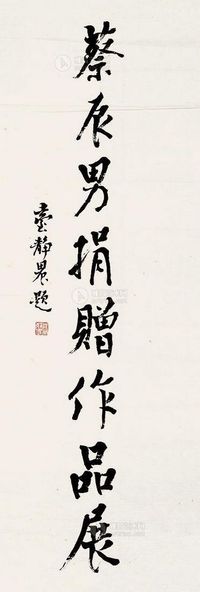 蔡辰男捐贈作品展
臺靜農題